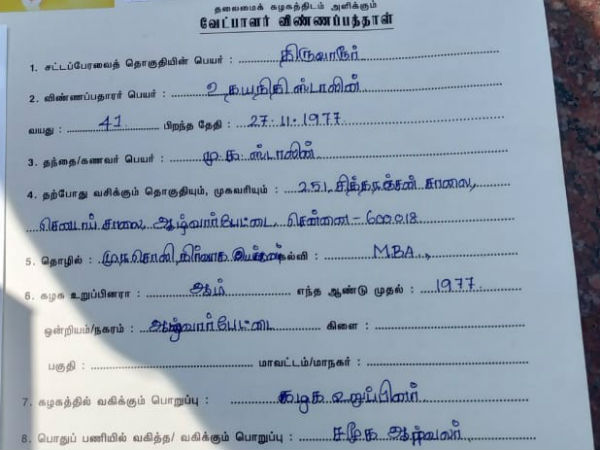 தலைமைக் கழகத்திடம் அளிக்கும்
வேட்பாளர் விண்ணப்பத்தாள்
1. சட்டப்பேரவைத் தொகுதியின் பெயர் : திருவாரூர்
2. விண்ணப்பதாரர் பெயர் : உதயநிதி ஸ்டாலின்
வயது : 41 பிறந்த தேதி : 27.11.1977
3. தந்தை/கணவர் பெயர் : மு க ஸ்டாலின்
4. தற்போது வசிக்கும் தொகுதியும், முகவரியும் : 25/, சித்தரஞ்சன் சாலை,
செனடாப் சாலை, ஆழ்வார்பேட்டை, சென்னை - 600018
5. தொழில் : முரசொலி நிர்வாக இயக்குனர் கல்வி : MBA.,
6. கழக உறுப்பினரா : ஆம் எந்த ஆண்டு முதல் : 1977
ஒன்றியம்/நகரம் : ஆழ்வார்பேட்டை கிளை :
பகுதி : மாவட்டம்/மாநகர் :
7. கழகத்தில் வகிக்கும் பொறுப்பு : கழக உறுப்பினர்
8. பொதுப் பணியில் வகித்த/ வகிக்கும் பொறுப்பு : சமூக ஆர்வலர்